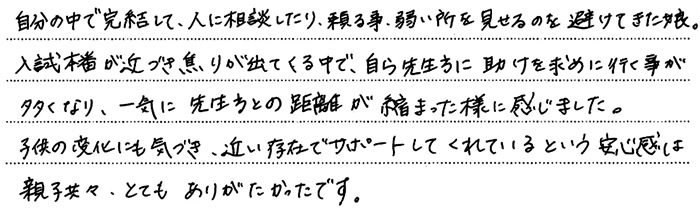 自分の中で完結して、人に相談したり、頼る事、弱い所を見せるのを避けてきた娘。
入試本番が近づき焦りが出てくる中で、自ら先生方に助けを求めに行く事が
多くなり、一気に先生方との距離が縮まった様に感じました。
子供の変化にも気づき、近い存在でサポートしてくれているという安心感は
親子共々、とてもありがたかったです。